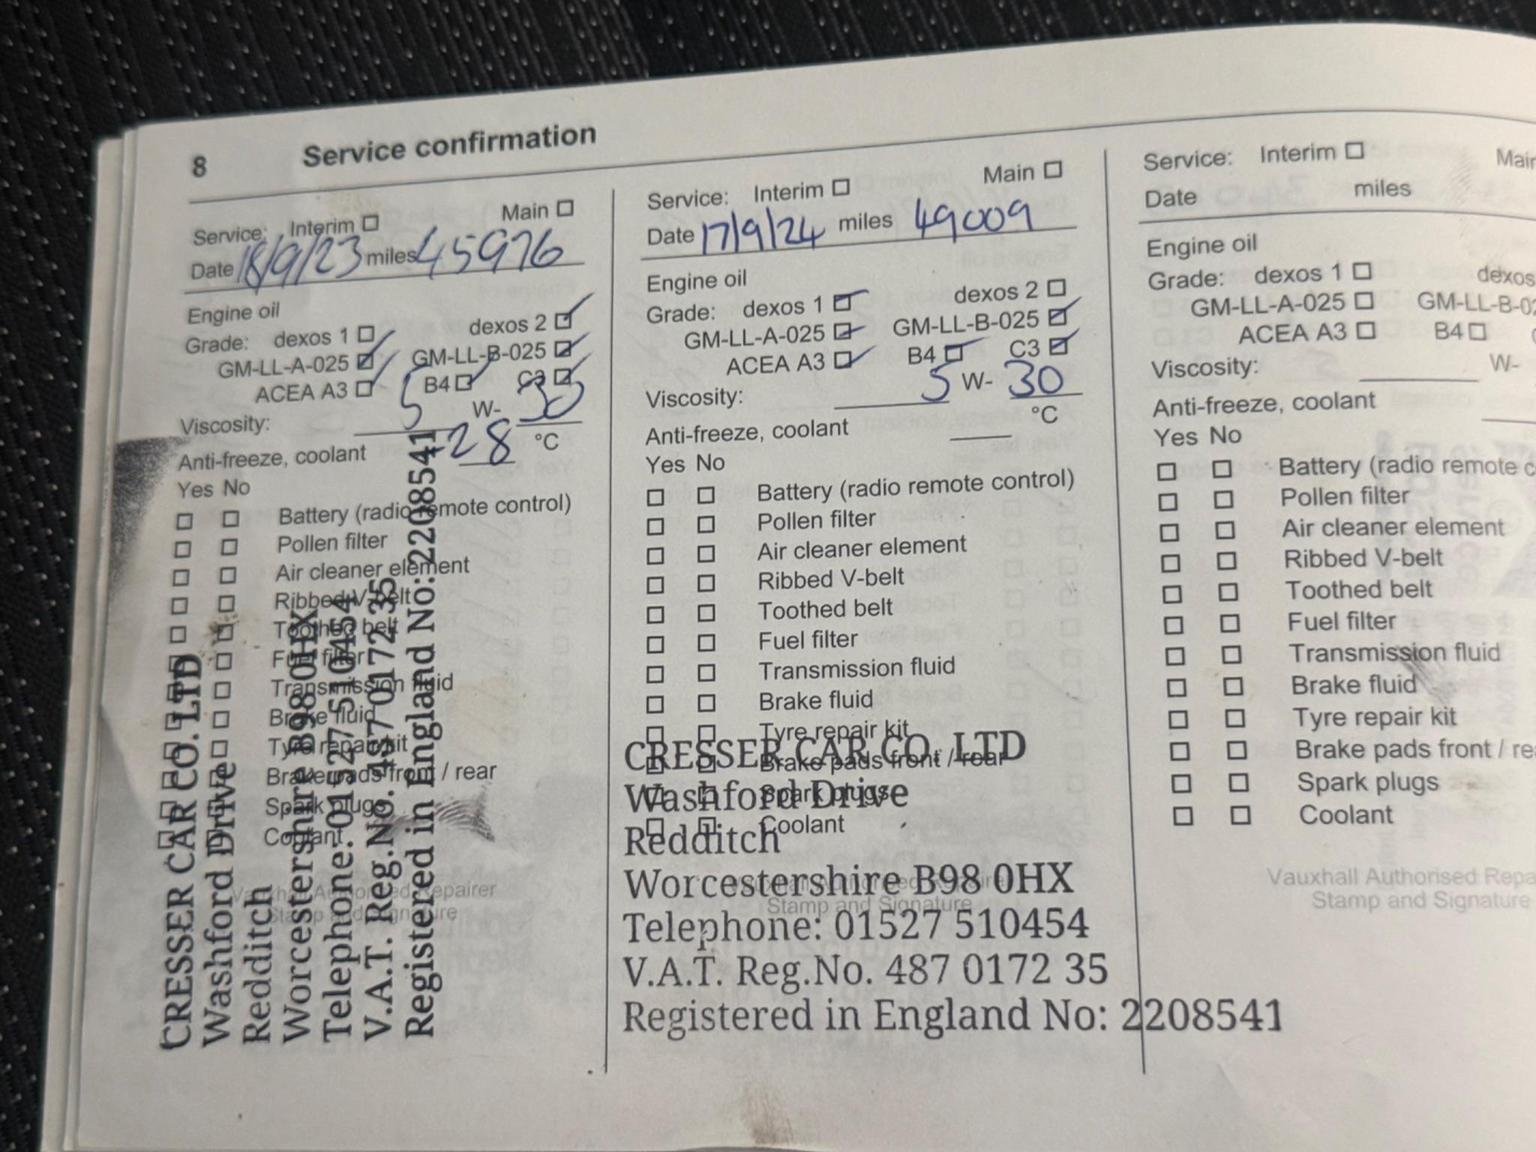 8 Service confirmation
Service: Interim ☐ Main ☐
Date 18/9/23 miles 45976
Engine oil
Grade: dexos 1 ☐ dexos 2 ☑
GM-LL-A-025 ☑ GM-LL-B-025 ☑
ACEA A3 ☑ B4 ☑ C3 ☑
Viscosity: 5 W- 30
Anti-freeze, coolant -28 °C
Yes No
☐ ☐ Battery (radio remote control)
☐ ☐ Pollen filter
☐ ☐ Air cleaner element
☐ ☐ Ribbed V-belt
☐ ☐ Toothed belt
☐ ☐ Fuel filter
☐ ☐ Transmission fluid
☐ ☐ Brake fluid
☐ ☐ Tyre repair kit
☐ ☐ Brake pads front / rear
☐ ☐ Spark plugs
☐ ☐ Coolant
Vauxhall Authorised Repairer
Stamp and Signature
CRESSER CAR CO. LTD
Washford Drive
Redditch
Worcestershire B98 0HX
Telephone: 01527 510454
V.A.T. Reg.No. 487 0172 35
Registered in England No: 2208541
Service: Interim ☐ Main ☐
Date 17/9/24 miles 49009
Engine oil
Grade: dexos 1 ☑ dexos 2 ☐
GM-LL-A-025 ☑ GM-LL-B-025 ☑
ACEA A3 ☑ B4 ☑ C3 ☑
Viscosity: 5 W- 30
Anti-freeze, coolant °C
Yes No
☐ ☐ Battery (radio remote control)
☐ ☐ Pollen filter
☐ ☐ Air cleaner element
☐ ☐ Ribbed V-belt
☐ ☐ Toothed belt
☐ ☐ Fuel filter
☐ ☐ Transmission fluid
☐ ☐ Brake fluid
☐ ☐ Tyre repair kit
☐ ☐ Brake pads front / rear
☐ ☐ Spark plugs
☐ ☐ Coolant
Stamp and Signature
CRESSER CAR CO. LTD
Washford Drive
Redditch
Worcestershire B98 0HX
Telephone: 01527 510454
V.A.T. Reg.No. 487 0172 35
Registered in England No: 2208541
Service: Interim ☐ Main
Date miles
Engine oil
Grade: dexos 1 ☐ dexos
GM-LL-A-025 ☐ GM-LL-B-02
ACEA A3 ☐ B4 ☐
Viscosity: W-
Anti-freeze, coolant
Yes No
☐ ☐ Battery (radio remote c
☐ ☐ Pollen filter
☐ ☐ Air cleaner element
☐ ☐ Ribbed V-belt
☐ ☐ Toothed belt
☐ ☐ Fuel filter
☐ ☐ Transmission fluid
☐ ☐ Brake fluid
☐ ☐ Tyre repair kit
☐ ☐ Brake pads front / re
☐ ☐ Spark plugs
☐ ☐ Coolant
Vauxhall Authorised Repa
Stamp and Signature